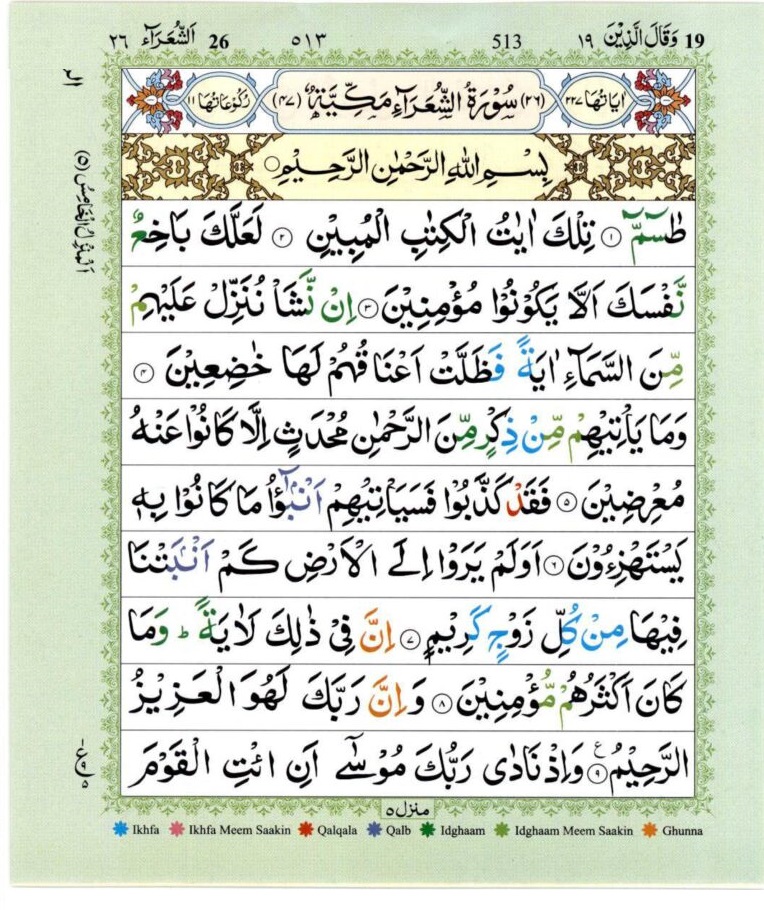 19 وَقَالَ الَّذِيْنَ ١٩ 513 ٥١٣ 26 اَلشُّعَرَآء ٢٦
اٰيَاتُهَا ٢٢٧ (٢٦) سُوْرَةُ الشُّعَرَآءِ مَكِّيَّةٌ (٤٧) رُكُوْعَاتُهَا ١١
بِسْمِ اللّٰهِ الرَّحْمٰنِ الرَّحِيْمِ
طٰسٓمّٓ ۝١ تِلْكَ اٰيٰتُ الْكِتٰبِ الْمُبِيْنِ ۝٢ لَعَلَّكَ بَاخِعٌ
نَّفْسَكَ اَلَّا يَكُوْنُوْا مُؤْمِنِيْنَ ۝٣ اِنْ نَّشَاْ نُنَزِّلْ عَلَيْهِمْ
مِّنَ السَّمَآءِ اٰيَةً فَظَلَّتْ اَعْنَاقُهُمْ لَهَا خٰضِعِيْنَ ۝٤
وَمَا يَاْتِيْهِمْ مِّنْ ذِكْرٍ مِّنَ الرَّحْمٰنِ مُحْدَثٍ اِلَّا كَانُوْا عَنْهُ
مُعْرِضِيْنَ ۝٥ فَقَدْ كَذَّبُوْا فَسَيَاْتِيْهِمْ اَنْۢبٰٓؤُا مَا كَانُوْا بِهٖ
يَسْتَهْزِءُوْنَ ۝٦ اَوَلَمْ يَرَوْا اِلَى الْاَرْضِ كَمْ اَنْۢبَتْنَا
فِيْهَا مِنْ كُلِّ زَوْجٍ كَرِيْمٍ ۝٧ اِنَّ فِيْ ذٰلِكَ لَاٰيَةً ؕ وَمَا
كَانَ اَكْثَرُهُمْ مُّؤْمِنِيْنَ ۝٨ وَاِنَّ رَبَّكَ لَهُوَ الْعَزِيْزُ
الرَّحِيْمُ ۝٩ وَاِذْ نَادٰى رَبُّكَ مُوْسٰٓى اَنِ ائْتِ الْقَوْمَ
منزل ٥
Ikhfa Ikhfa Meem Saakin Qalqala Qalb Idghaam Idghaam Meem Saakin Ghunna